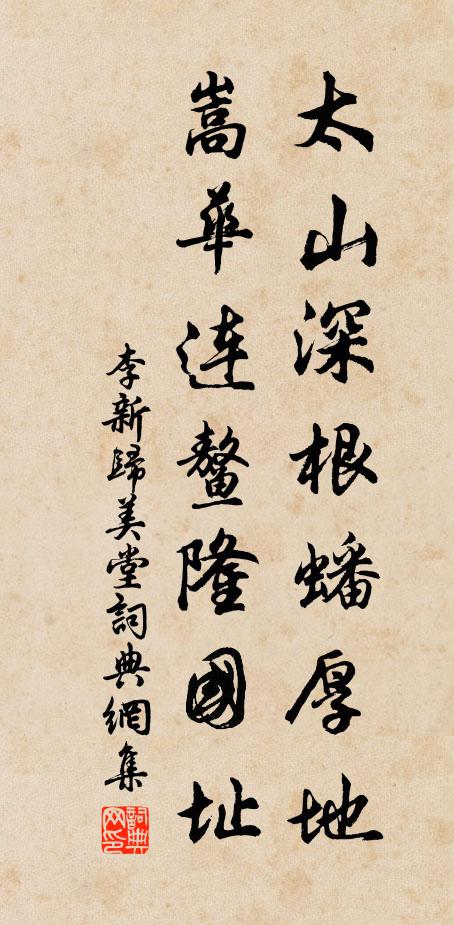 太山深根蟠厚地
嵩華連鰲隆國址
李新歸美堂詞典網集
詞典
网印